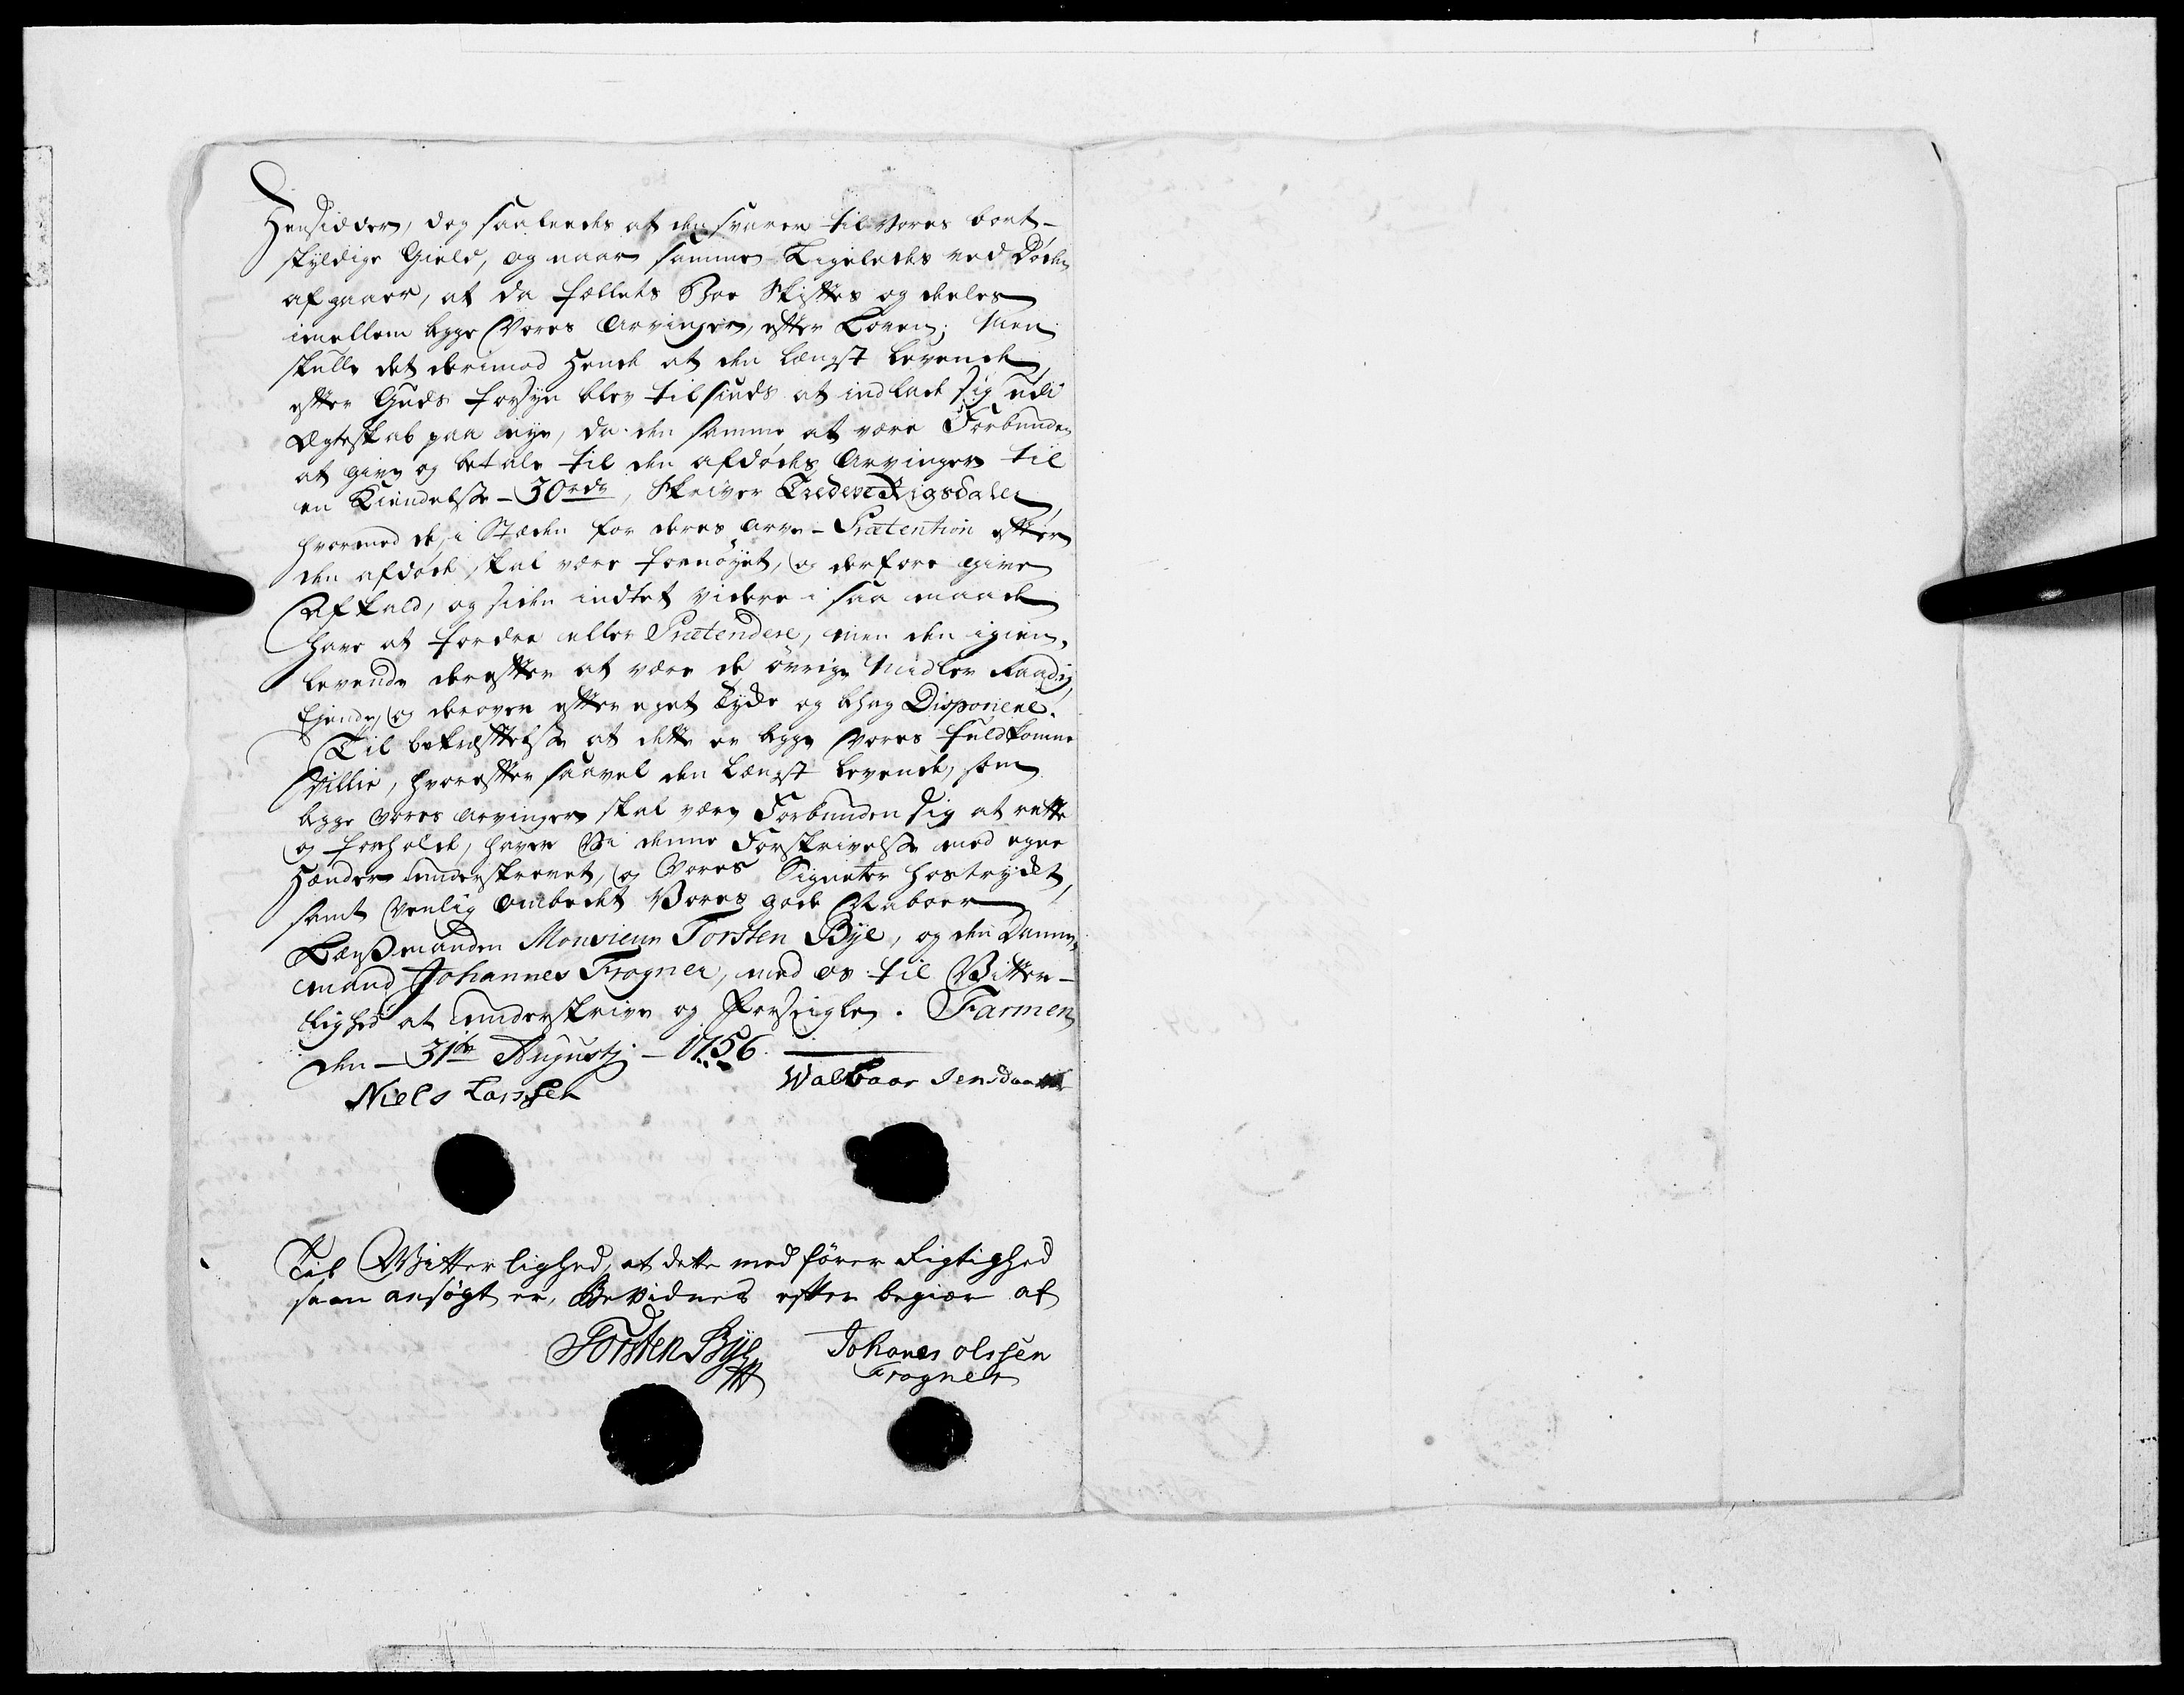 Hensidder, dog saaleedes at den svarer til Vores bort-
skyldige Gield, og naar samme Ligeledes ved Døden
afgaaer, at da fællets Boe Skiftes og deeles
imellem begge Vores Arvinger, efter Loven; Men
skulle det derimod Hende at den længst Levende,
efter Guds forsyn blev tilsinds at indlade sig udi
Ægteskab paa nye, da den samme at være Forbunden
at give og betale til den afdødes Arvinger til
en Kiendelse - 30 rdr, Skriver Tredeve Rigsdaler,
hvormed de, i Stæden for deres Arve-Prætention efter
den afdøde skal være fornøyet, og derfore give
Afkald, og siden indtet videre i saa maade
have at fordre eller Prætendere, men den igien-
levende derefter at være de øvrige Midler Raadig,
Ejende, og derover efter eget Tyde og behag Disponere.
Til bekræftelse at dette er begge Vores fuldkomne
Villie, hvorefter saavel den Længst Levende, som
begge Vores Arvinger skal være Forbunden Sig at rette
og forholde, haver Vi denne Forskrivelse med egne
Hænder underskrevet, og Vores Signeter hostrydt,
samt Venlig ombedet Vores gode Naboer
Lænßmanden Monsieur Torsten Bÿe, og den Danne-
mand Johannes Frogner, med os til Vitter-
lighed at underskrive og forseigle. Farmen
den - 31te Augustj - 1756.
Niels Larssen Walbaar Jensdaatter
Til Witterlighed, at dette medfører Rigtighed
som ansøgt er, Bevidnes efter begiær af
Torsten Bÿe Johanes olssen
Frogner